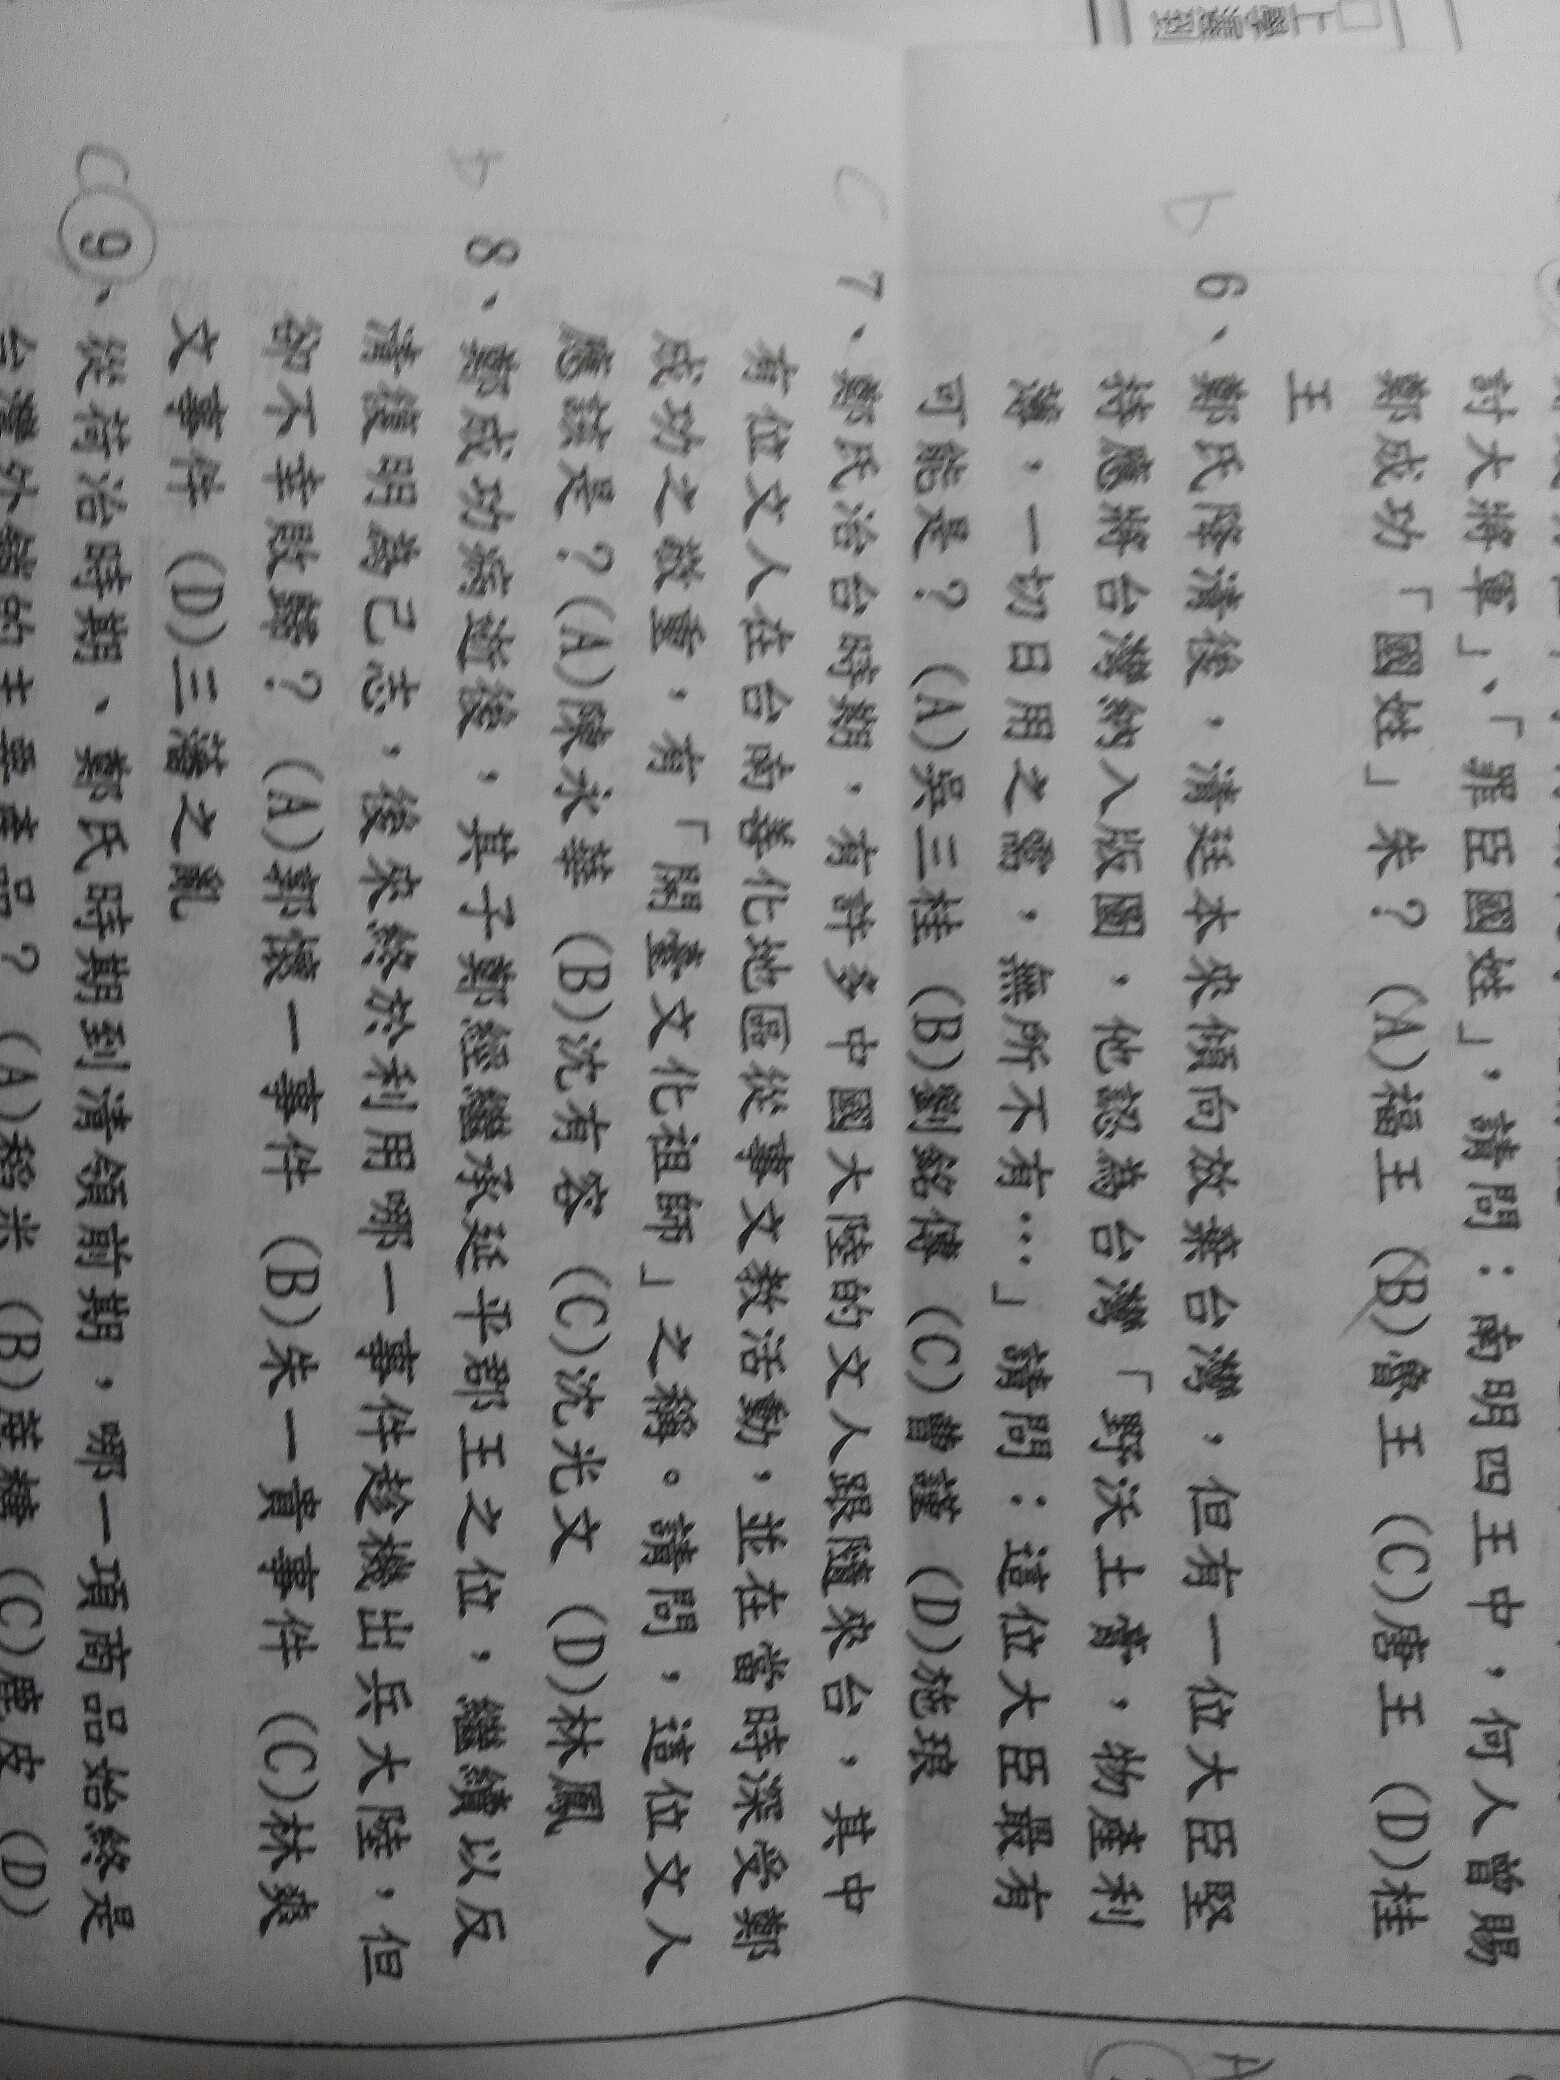 討大將軍」、「罪臣國姓」，請問：南明四王中，何人曾賜
鄭成功「國姓」朱？ (A)福王 (B)魯王 (C)唐王 (D)桂
王
D
6、鄭氏降清後，清廷本來傾向放棄台灣，但有一位大臣堅
持應將台灣納入版圖，他認為台灣「野沃土膏，物產利
溥，一切日用之需，無所不有…」請問：這位大臣最有
可能是？ (A)吳三桂 (B)劉銘傳 (C)曹謹 (D)施琅
C
7、鄭氏治台時期，有許多中國大陸的文人跟隨來台，其中
有位文人在台南善化地區從事文教活動，並在當時深受鄭
成功之敬重，有「開臺文化祖師」之稱。請問，這位文人
應該是？(A)陳永華 (B)沈有容 (C)沈光文 (D)林鳳
D
8、鄭成功病逝後，其子鄭經繼承延平郡王之位，繼續以反
清復明為己志，後來終於利用哪一事件趁機出兵大陸，但
卻不幸敗歸？ (A)郭懷一事件 (B)朱一貴事件 (C)林爽
文事件 (D)三藩之亂
C
9、從荷治時期、鄭氏時期到清領前期，哪一項商品始終是
台灣外銷的主要產品？ (A)稻米 (B)蔗糖 (C)鹿皮 (D)
A